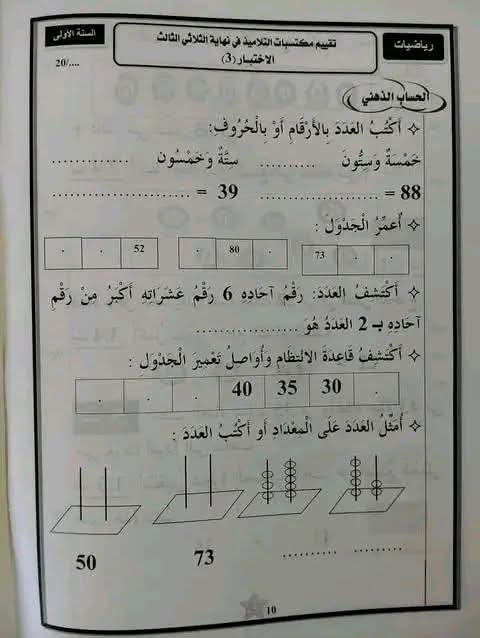 رياضيات
تقييم مكتسبات التلاميذ في نهاية الثلاثي الثالث
الاختبار (3)
السنة الأولى
20/....
الحساب الذهني
أَكْتُبُ العَدَدَ بِالأَرْقَامِ أَوْ بِالْحُرُوفِ:
خَمْسَةٌ وَسِتُّونَ ............ سِتَّةٌ وَخَمْسُون ............
88 = ...................... 39 = ......................
أُعَمِّرُ الْجَدْوَلَ :
73 . . . 80 . 52 . .
أَكْتَشِفُ العَدَدَ: رَقْمُ آحَادِهِ 6 رَقْمُ عَشَرَاتِهِ أَكْبَرُ مِنْ رَقْمِ
آحَادِهِ بـ 2 العَدَدُ هُوَ ................
أَكْتَشِفُ قَاعِدَةَ الاِنْتِظَامِ وَأُوَاصِلُ تَعْمِيرَ الْجَدْوَلِ :
. . . 40 35 30 .
أُمَثِّلُ العَدَدَ عَلَى الْمِعْدَادِ أَوْ أَكْتُبُ العَدَدَ :
50 73 .......... ..........
10